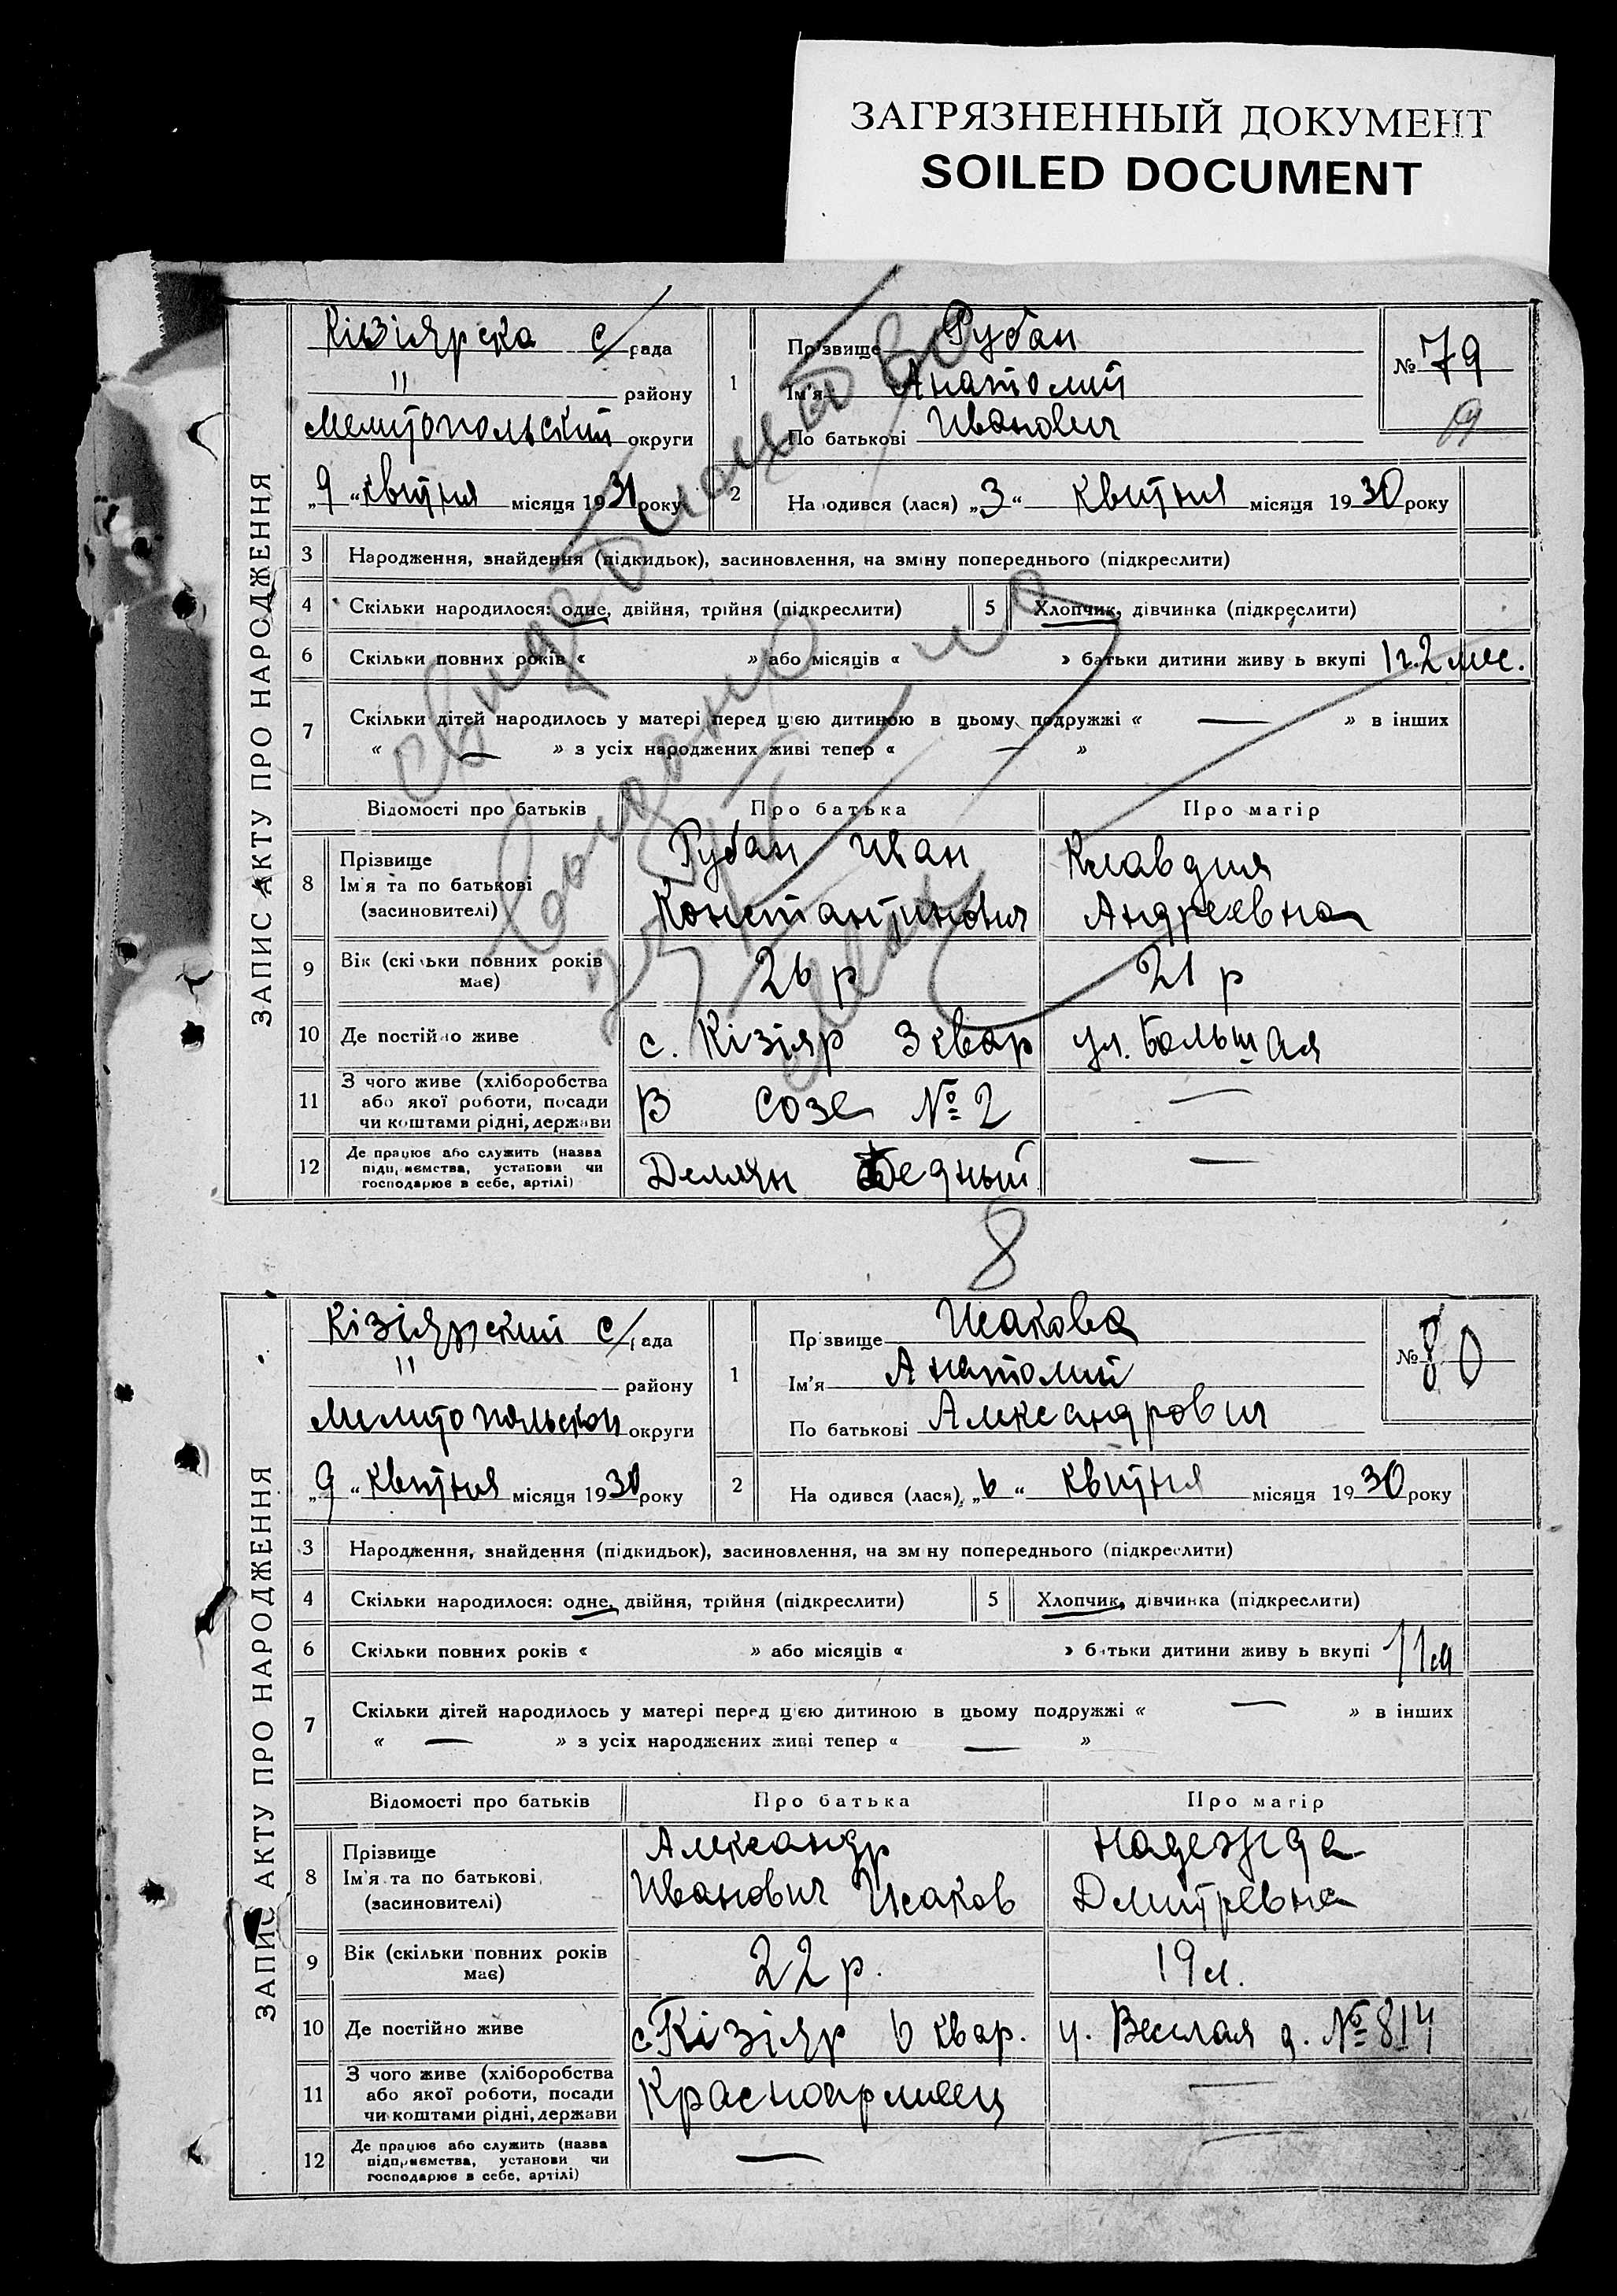 ЗАГРЯЗНЕННЫЙ ДОКУМЕНТ
SOILED DOCUMENT
ЗАПИС АКТУ ПРО НАРОДЖЕННЯ
Кізіярска с/рада
" району
Мелитопольский округи
„9“ квитня місяця 1931 року
1
Прізвище Рубан
Ім'я Анатолий
По батькові Иванович
№ 79
19
2
На одився (лася) „3“ квитня місяця 1930 року
3 Народження, знайдення (підкидьок), засиновлення, на зміну попереднього (підкреслити)
4 Скільки народилося: одне, двійня, трійня (підкреслити)
5 Хлопчик, дівчинка (підкреслити)
6 Скільки повних років « » або місяців « » батьки дитини живу ь вкупі 1 г. 2 мес.
7 Скільки дітей народилось у матері перед цією дитиною в цьому подружжі « — » в інших
« — » з усіх народжених живі тепер « — »
Відомості про батьків Про батька Про матір
8 Прізвище Ім'я та по батькові (засиновителі)
Рубан Иван
Константинович
Клавдия
Андреевна
9 Вік (скільки повних років має) 26 р 21 р
10 Де постійно живе с. Кізіяр 3 квар ул. Большая
11 З чого живе (хліборобства
або якої роботи, посади
чи коштами рідні, держави
В созе № 2 —
12 Де працює або служить (назва
підприємства, установи чи
господарює в себе, артілі)
Демян Бедный —
Свид
8
ЗАПИС АКТУ ПРО НАРОДЖЕННЯ
Кізіярский с/рада
" району
Мелитопольской округи
„9“ квитня місяця 1930 року
1
Прізвище Исакова
Ім'я Анатолий
По батькові Александрович
№ 80
2
На одився (лася) „6“ квитня місяця 1930 року
3 Народження, знайдення (підкидьок), засиновлення, на зміну попереднього (підкреслити)
4 Скільки народилося: одне, двійня, трійня (підкреслити)
5 Хлопчик, дівчинка (підкреслити)
6 Скільки повних років « » або місяців « » батьки дитини живу ь вкупі
7 Скільки дітей народилось у матері перед цією дитиною в цьому подружжі « — » в інших
« — » з усіх народжених живі тепер « — »
Відомості про батьків Про батька Про матір
8 Прізвище Ім'я та по батькові (засиновителі)
Александр
Иванович Исаков
Надежда
Дмитревна
9 Вік (скільки повних років має) 22 р. 19 л.
10 Де постійно живе с. Кізіяр 6 квар. у. Веслая д. № 814
11 З чого живе (хліборобства
або якої роботи, посади
чи коштами рідні, держави
Красноармеец —
12 Де працює або служить (назва
підприємства, установи чи
господарює в себе, артілі)
— —